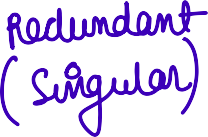 Redundant
(Singular)